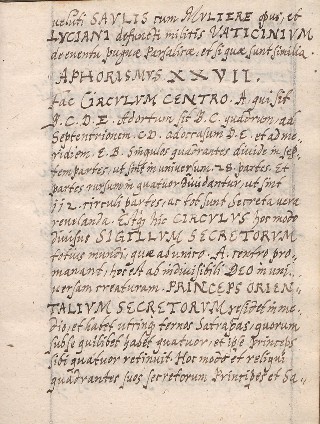 ueluti SAVLIS cum MVLIERE opus, et
LVCIANI defuncti militis VATICINIVM
de euentu pugnæ Parsalicæ, et si quæ sunt similia
APHORISMVS XXVII.
Fac CIRCVLVM CENTRO. A, qui sit
B. C. D. E. Ad ortum sit B.C. quadrum. ad
Septentrionem C.D. ad occasum D.E. et ad me
ridiem. E.B. Singulos quadrantes diuide in sep
tem partes, ut sint in uniuersum. 28. partes. Et
partes rursum in quatuor diuidantur, ut sint
112. circuli partes, ac tot sunt Secreta uera
reuelanda. Estq hic CIRCVLVS hoc modo
diuisus SIGILLVM SECRETORVM
totius mundi, quæ ab unico. A. centro pro
manant, hoc est ab indiuisibili DEO in uni
uersam creaturam. PRINCEPS ORIEN
TALIVM SECRETORVM residet in me
dio, et habet utrinq ternos Satrapas, quorum
sub se quilibet habet quatuor, et ipse Princeps
sibi quatuor retinuit. Hoc modo et reliqui
quadrantes suos secretorum Principes et Sa-